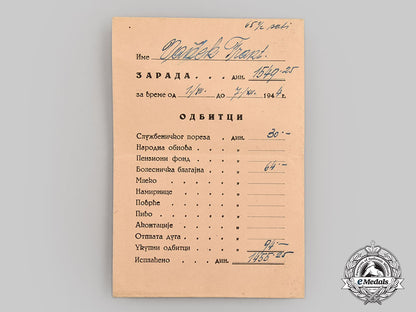 65½ sati
Име Vojžek Franț.
ЗАРАДА . . . дин. 1549.25
за време од 1/VII. до 7/VII. 1944 г.
ОДБИТЦИ
Службеничког пореза . дин. 30.—
Народна обнова . . . . „
Пензиони фонд . . . . „
Болесничка благајна . . „ 64.—
Млеко . . . . . . . „
Намирнице . . . . . „
Поврће . . . . . . „
Пиво . . . . . . . „
Аконтације . . . . . „
Отплата дуга . . . . . „
Укупни одбитци . . . . „ 94.—
Исплаћено . . . . дин. 1455.25
eMedals